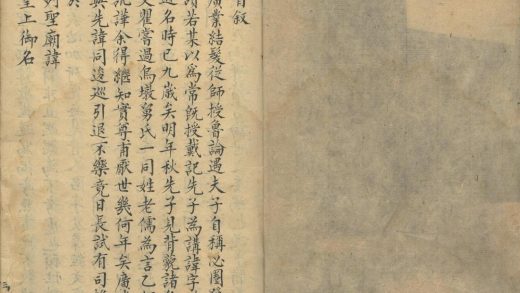 自叙
廣業結髮從師授魯論過夫子自稱必圈發
請若某以為常旣授戴記先子為講諱字
名時已九歲矣明年秋先子見背藐諸
文耀嘗過烏墩舅氏一同姓老儒為言乙
諱余得繼知實尊甫厭世幾何年矣廣
與先諱同逡巡引退不樂竟日長試有司
列聖廟諱
皇上御名